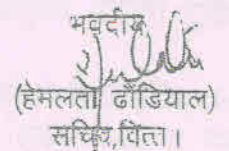 भवदीय
(हेमलता ढौंडियाल)
सचिव,वित्त।